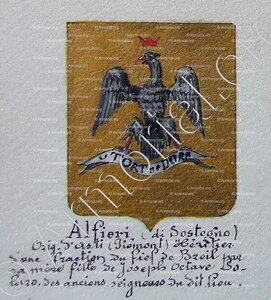 TORT NE DURE
Alfieri (di Sostegno)
Orig. d'Asti (Piémont) Héritier
d'une fraction du fief de Breil par
sa mère fille de Joseph Octave
des anciens seigneurs du dit lieu.